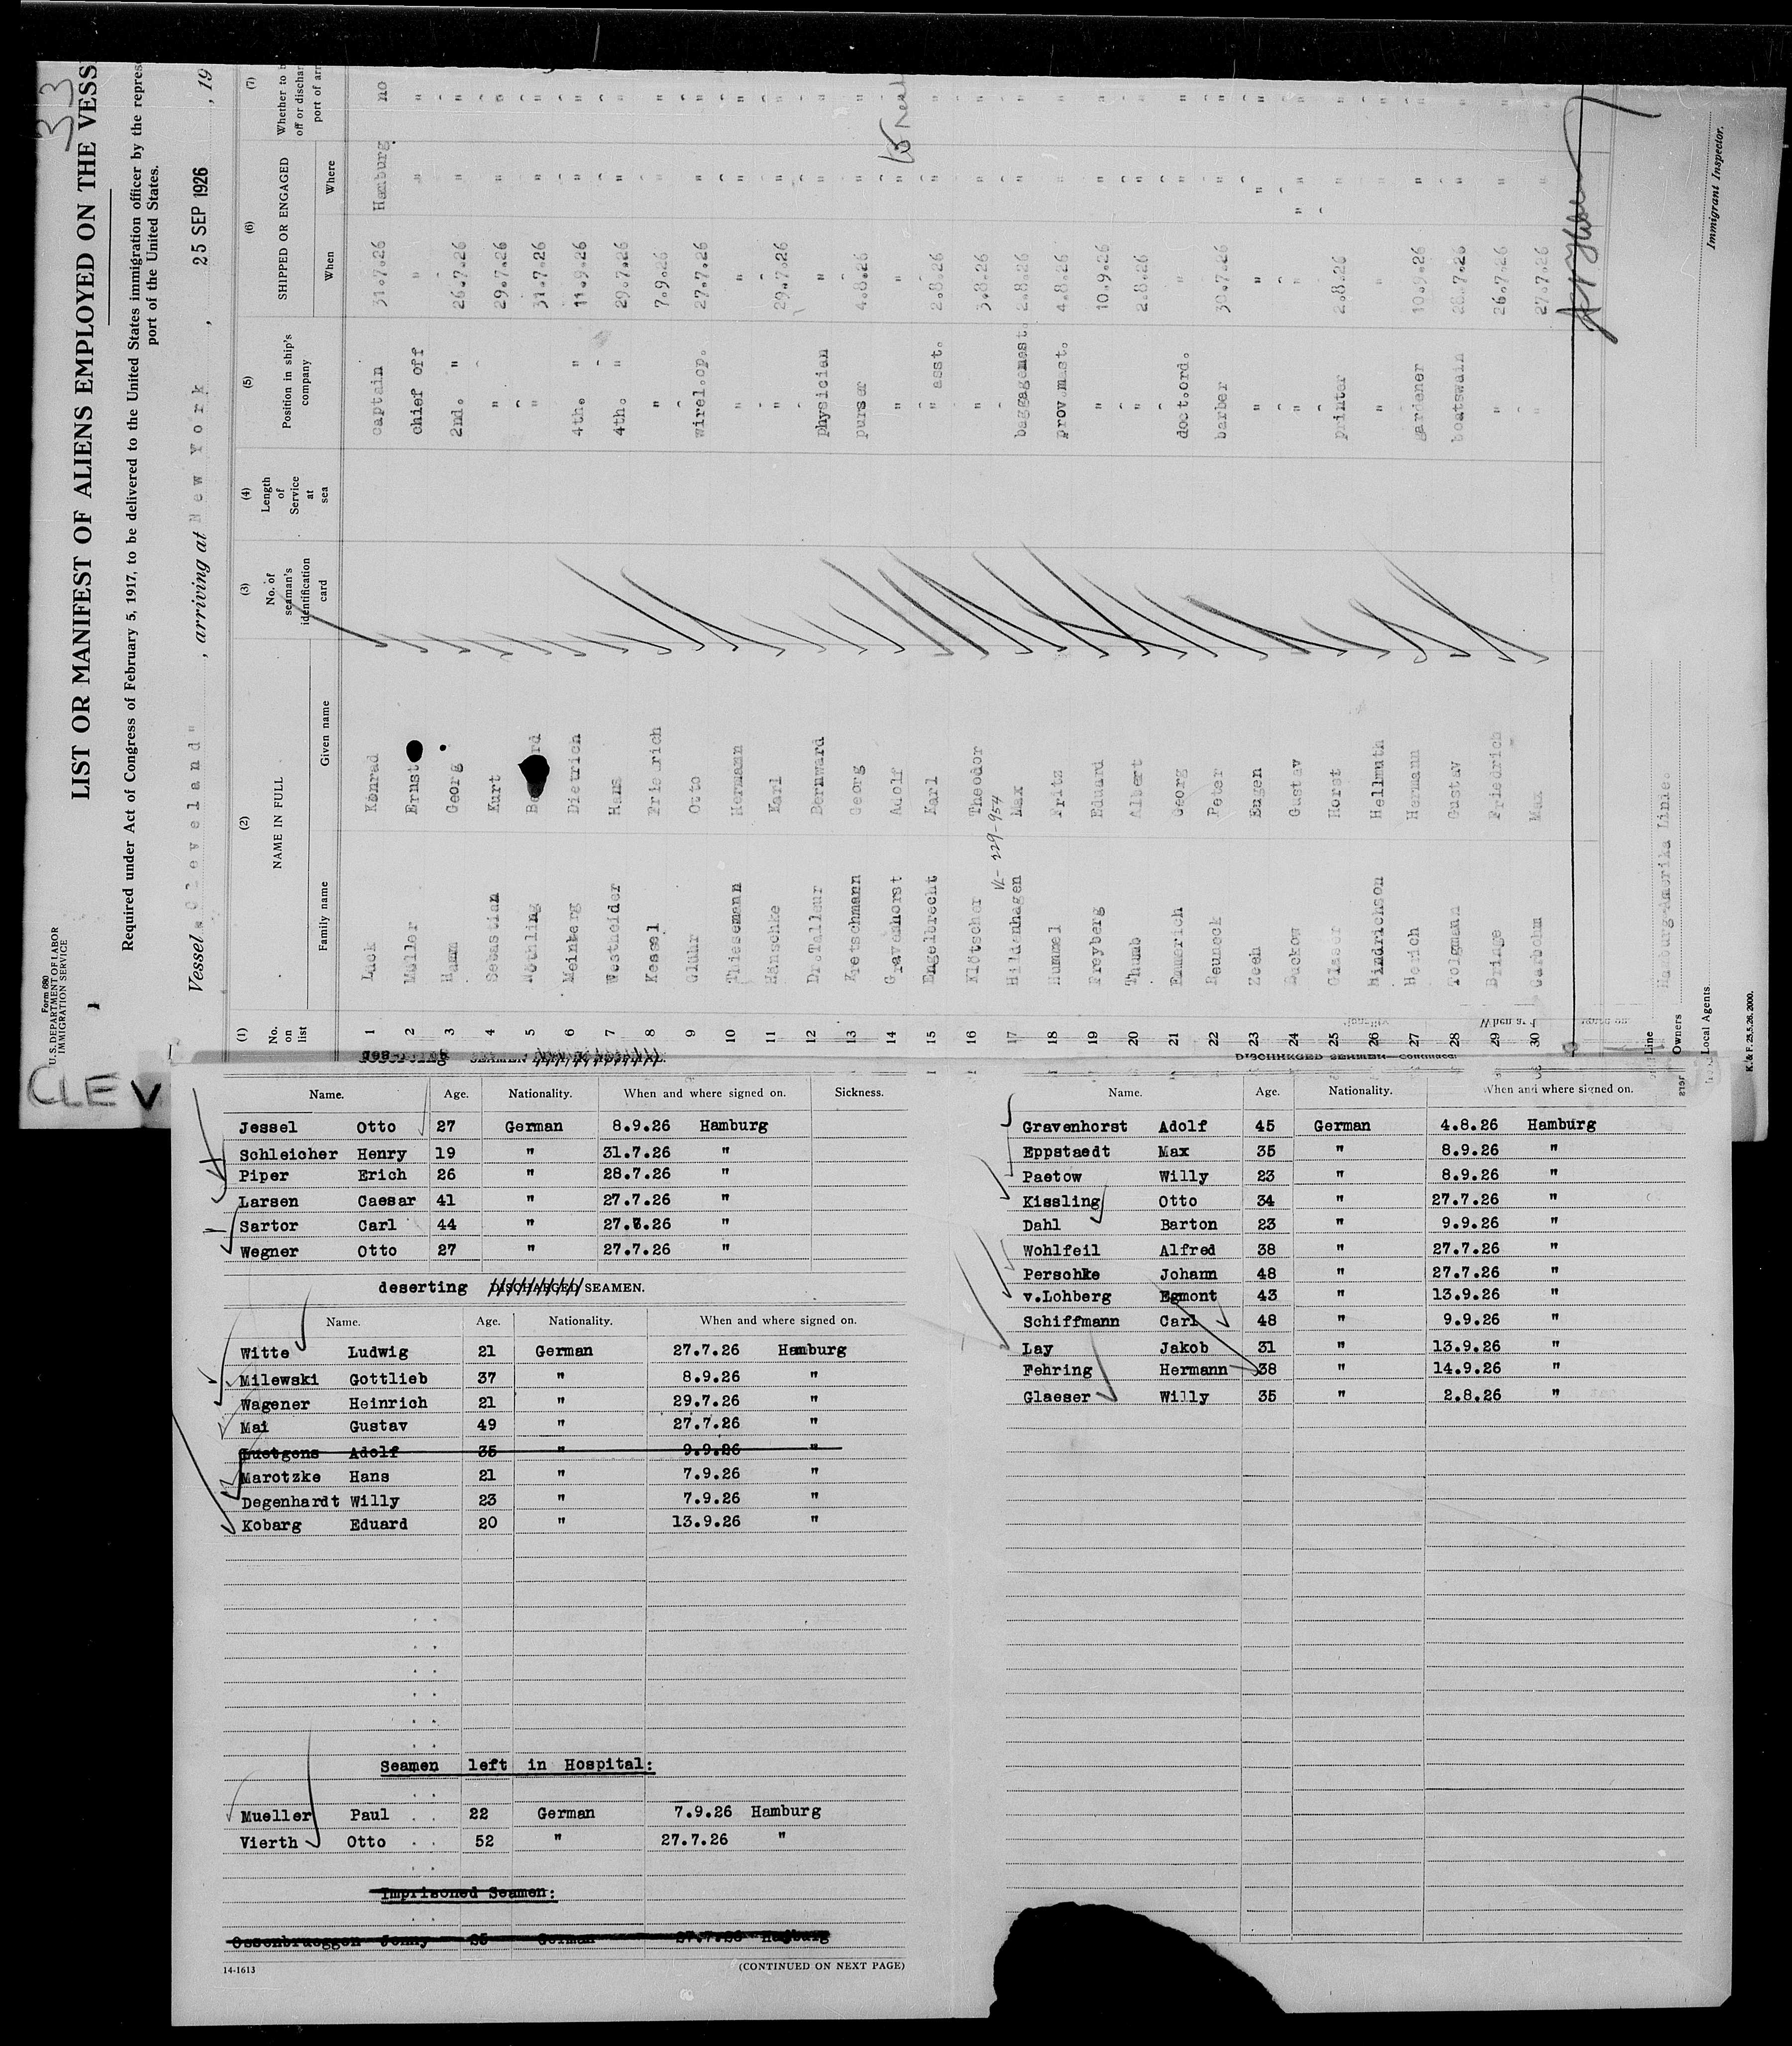 33
Form 680
U. S. DEPARTMENT OF LABOR
IMMIGRATION SERVICE
1
LIST OR MANIFEST OF ALIENS EMPLOYED ON THE VESS
Required under Act of Congress of February 5, 1917, to be delivered to the United States immigration officer by the repres
port of the United States.
Vessel "Cleveland", arriving at New York, 25 SEP 1926, 19
(1) (2) (3) (4) (5) (6) (7)
No. on list NAME IN FULL No. of seaman's identification card Length of Service at sea Position in ship's company SHIPPED OR ENGAGED Whether to off or dischar port of arr
Family name Given name When Where
1 Luck Konrad captain 31.7.26 Hamburg no
2 Müller Ernst chief off " " "
3 Hamm Georg 2nd. " 26.7.26 " "
4 Sebastian Kurt " 29.7.26 " "
5 Nöthling " 31.7.26 " "
6 Meinberg Dietrich 4th. " 11.9.26 " "
7 Westheider Hans 4th. " 29.7.26 " "
8 Kessel Friedrich " 7.9.26 " "
9 Glühr Otto wirel.op. 27.7.26 " "
10 Thiesemann Hermann " " " "
11 Hänschke Karl " 29.7.26 " "
12 Dr.Talleur Bernward physician " " "
13 Kretschmann Georg purser 4.8.26 " "
14 Gravenhorst Adolf " " " "
15 Engelbrecht Karl " asst. 2.8.26 " "
16 Klötscher Theodor " 3.8.26 " "
17 Hildenhagen Max baggagemest. 2.8.26 " "
18 Hummel Fritz prov.mast. 4.8.26 " "
19 Freyberg Eduard " 10.9.26 " "
20 Thumb Albert " 2.8.26 " "
21 Emmerich Georg doct.ord. " " "
22 Reuneck Peter barber 30.7.26 " "
23 Zeeh Eugen " " " "
24 Buckow Gustav " " " "
25 Glaser Horst printer 2.8.26 " "
26 Hindrichson Hellmuth " " " "
27 Herich Hermann gardener 10.9.26 " "
28 Tolgmann Gustav boatswain 28.7.26 " "
29 Bringe Friedrich " 26.7.26 " "
30 Carbohm Max " 27.7.26 " "
Line
Owners Hamburg-Amerika Linie.
Local Agents
Immigrant Inspector.
K. & F. 25.5.26. 2000.
CLEV
SEAMEN
Name. Age. Nationality. When and where signed on. Sickness.
Jessel Otto 27 German 8.9.26 Hamburg
Schleicher Henry 19 " 31.7.26 "
Piper Erich 26 " 28.7.26 "
Larsen Caesar 41 " 27.7.26 "
Sartor Carl 44 " 27.7.26 "
Wegner Otto 27 " 27.7.26 "
deserting DISCHARGED SEAMEN.
Name. Age. Nationality. When and where signed on.
Witte Ludwig 21 German 27.7.26 Hamburg
Milewski Gottlieb 37 " 8.9.26 "
Wagener Heinrich 21 " 29.7.26 "
Mai Gustav 49 " 27.7.26 "
Luetgens Adolf 35 " 9.9.26 "
Marotzke Hans 21 " 7.9.26 "
Degenhardt Willy 23 " 7.9.26 "
Kobarg Eduard 20 " 13.9.26 "
Seamen left in Hospital:
Mueller Paul 22 German 7.9.26 Hamburg
Vierth Otto 52 " 27.7.26 "
Imprisoned Seamen:
Ossenbrueggen Jonny 25 German 27.7.26 Hamburg
14-1613
(CONTINUED ON NEXT PAGE)
DISCHARGED SEAMEN—Continued.
Name. Age. Nationality. When and where signed on.
Gravenhorst Adolf 45 German 4.8.26 Hamburg
Eppstaedt Max 35 " 8.9.26 "
Paetow Willy 23 " 8.9.26 "
Kissling Otto 34 " 27.7.26 "
Dahl Barton 23 " 9.9.26 "
Wohlfeil Alfred 38 " 27.7.26 "
Perschke Johann 48 " 27.7.26 "
v.Lohberg Egmont 43 " 13.9.26 "
Schiffmann Carl 48 " 9.9.26 "
Lay Jakob 31 " 13.9.26 "
Fehring Hermann 38 " 14.9.26 "
Glaeser Willy 35 " 2.8.26 "